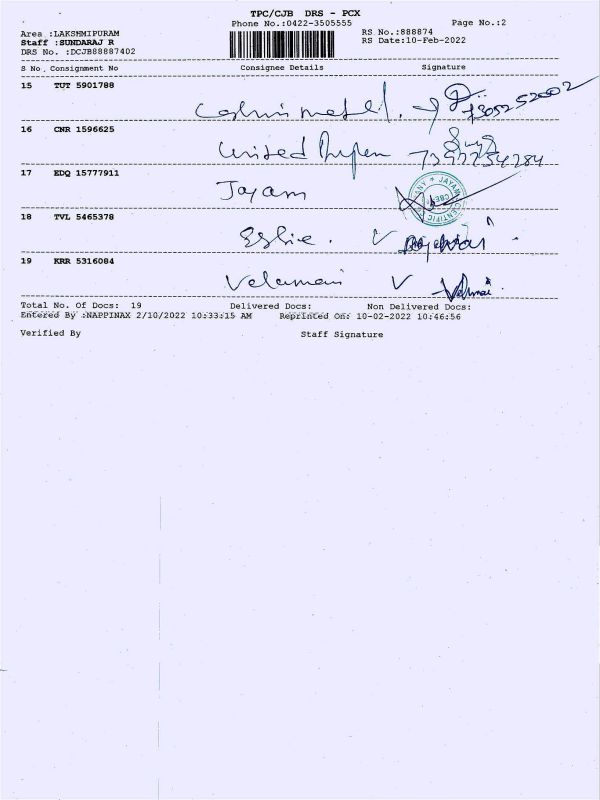 TPC/CJB DRS - PCX
Phone No.:0422-3505555 Page No.:2
Area :LAKSHMIPURAM RS No.:888874
Staff :SUNDARAJ R RS Date:10-Feb-2022
DRS No. :DCJB88887402
S No. Consignment No Consignee Details Signature
15 TUT 5901788
16 CNR 1596625
United
17 EDQ 15777911
Jayam
18 TVL 5465378
19 KRR 5316084
Velumani V
Total No. Of Docs: 19 Delivered Docs: Non Delivered Docs:
Entered By :NAPPINAX 2/10/2022 10:33:15 AM Reprinted On: 10-02-2022 10:46:56
Verified By Staff Signature